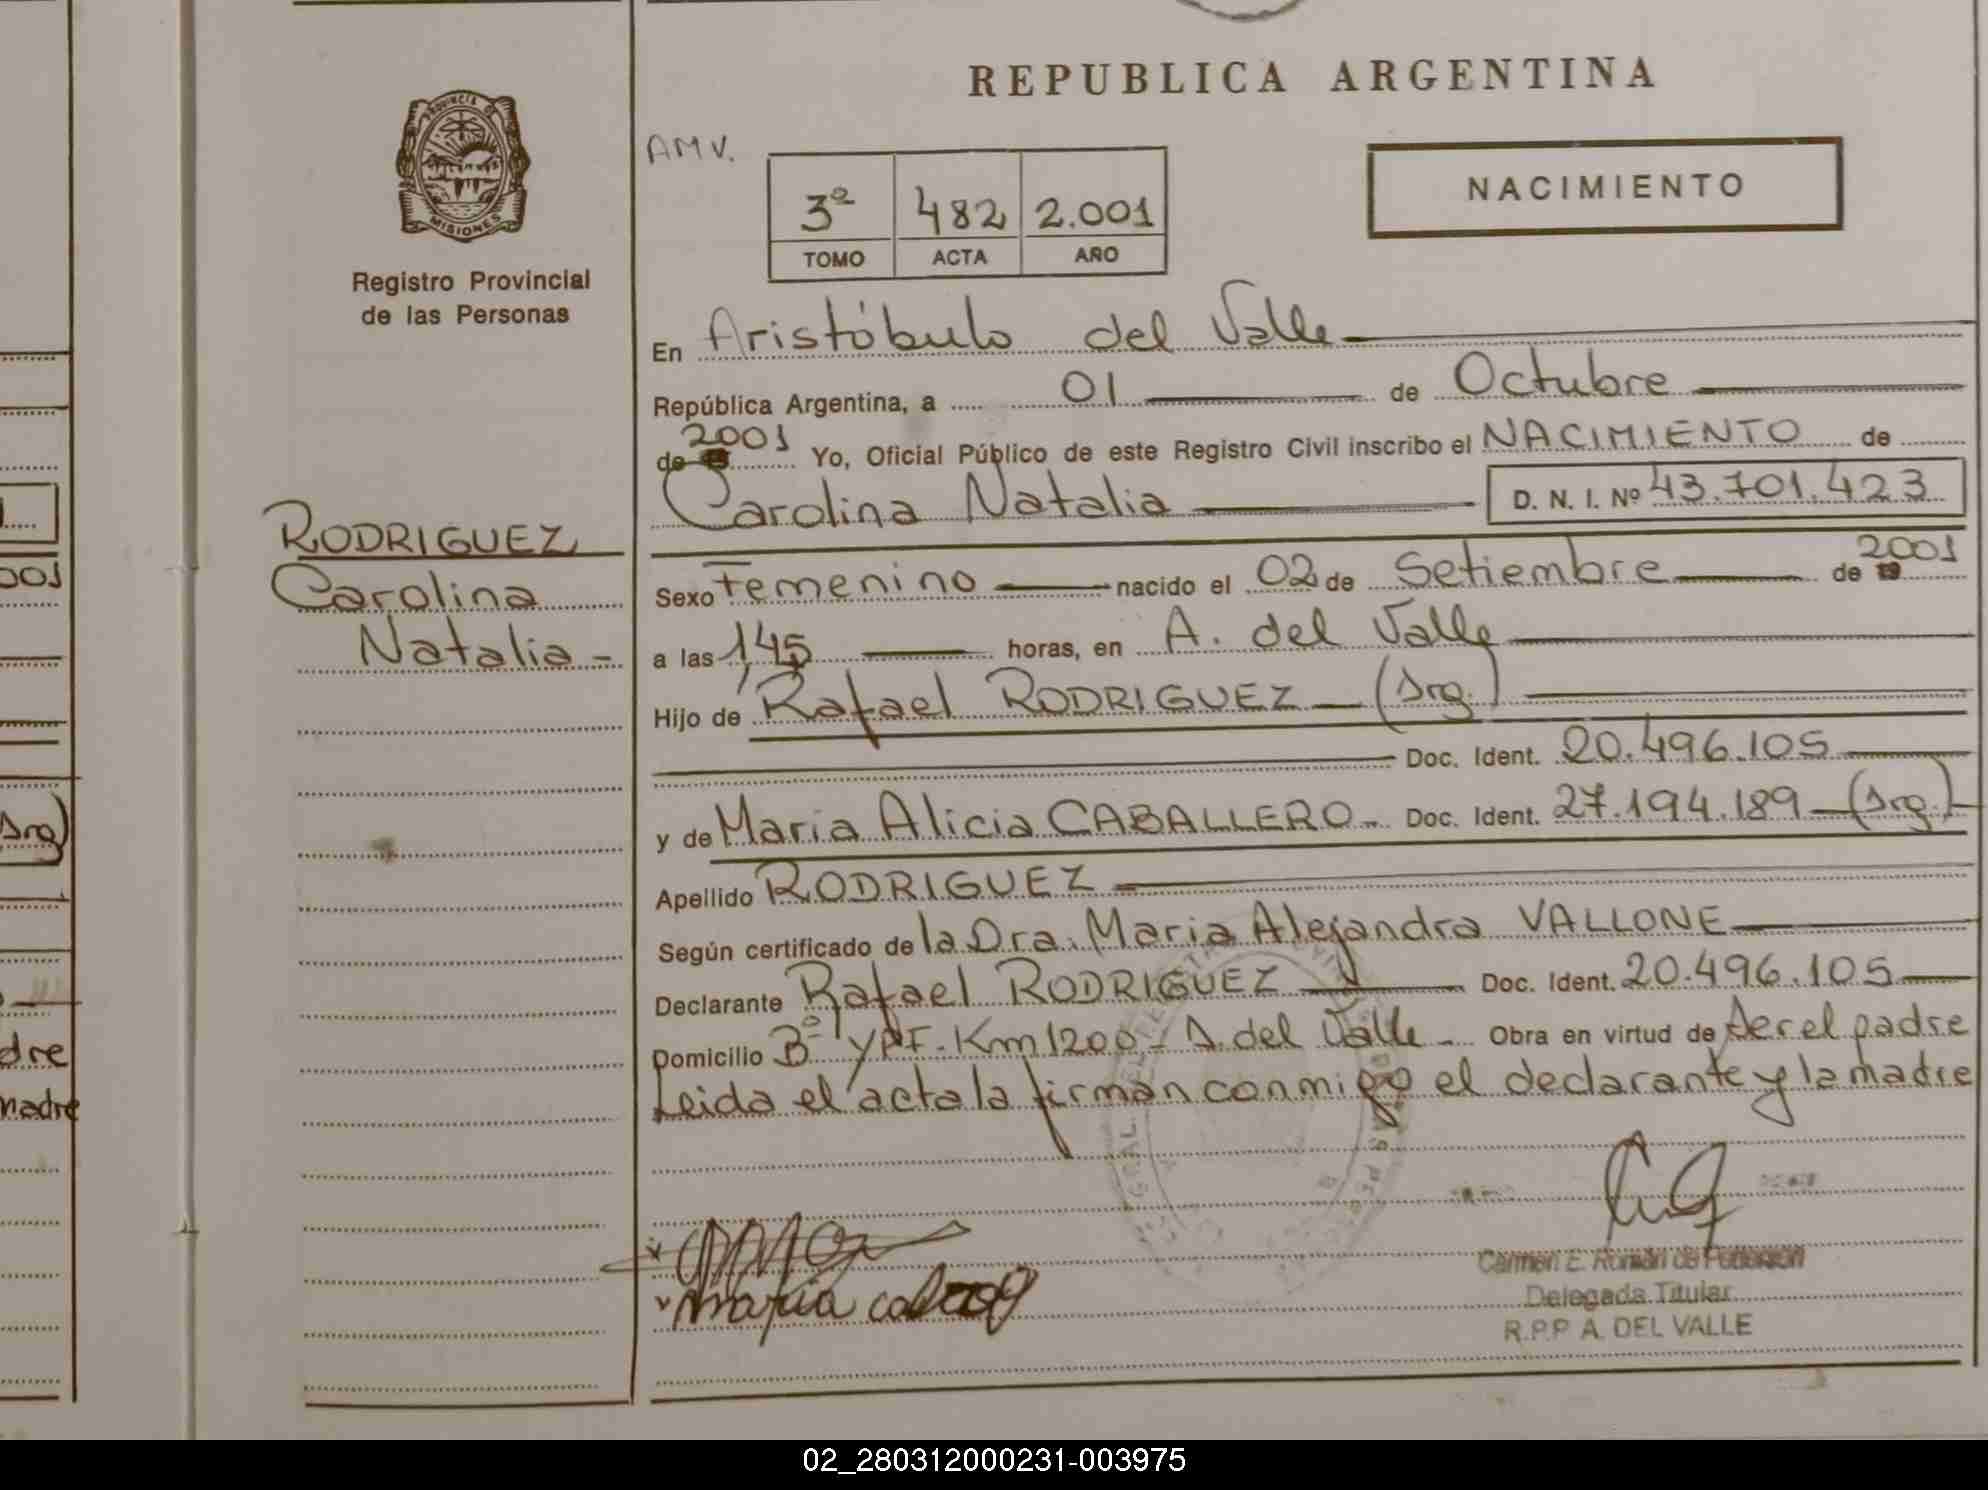 REPUBLICA ARGENTINA
PROVINCIA DE
MISIONES
Registro Provincial
de las Personas
AMV.
3º 482 2.001
TOMO ACTA AÑO
NACIMIENTO
En Aristóbulo del Valle
República Argentina, a 01 de Octubre
de 2001 Yo, Oficial Público de este Registro Civil inscribo el NACIMIENTO de
Carolina Natalia D. N. I. Nº 43.701.423
RODRIGUEZ
Carolina
Natalia-
Sexo Femenino nacido el 02 de Setiembre de 2001
a las 1,45 horas, en A. del Valle
Hijo de Rafael RODRIGUEZ - (Arg.)
Doc. Ident. 20.496.105
y de Maria Alicia CABALLERO- Doc. Ident. 27.194.189 - (Arg.)
Apellido RODRIGUEZ
Según certificado de la Dra. Maria Alejandra VALLONE
Declarante Rafael RODRIGUEZ Doc. Ident. 20.496.105
Domicilio Bº YPF. Km 1200 - A. del Valle - Obra en virtud de ser el padre
Leida el acta la firman conmigo el declarante y la madre
maria
Carmen E. Román de
Delegada Titular
R.P.P A. DEL VALLE
001
Arg)
dre
madre
02_280312000231-003975